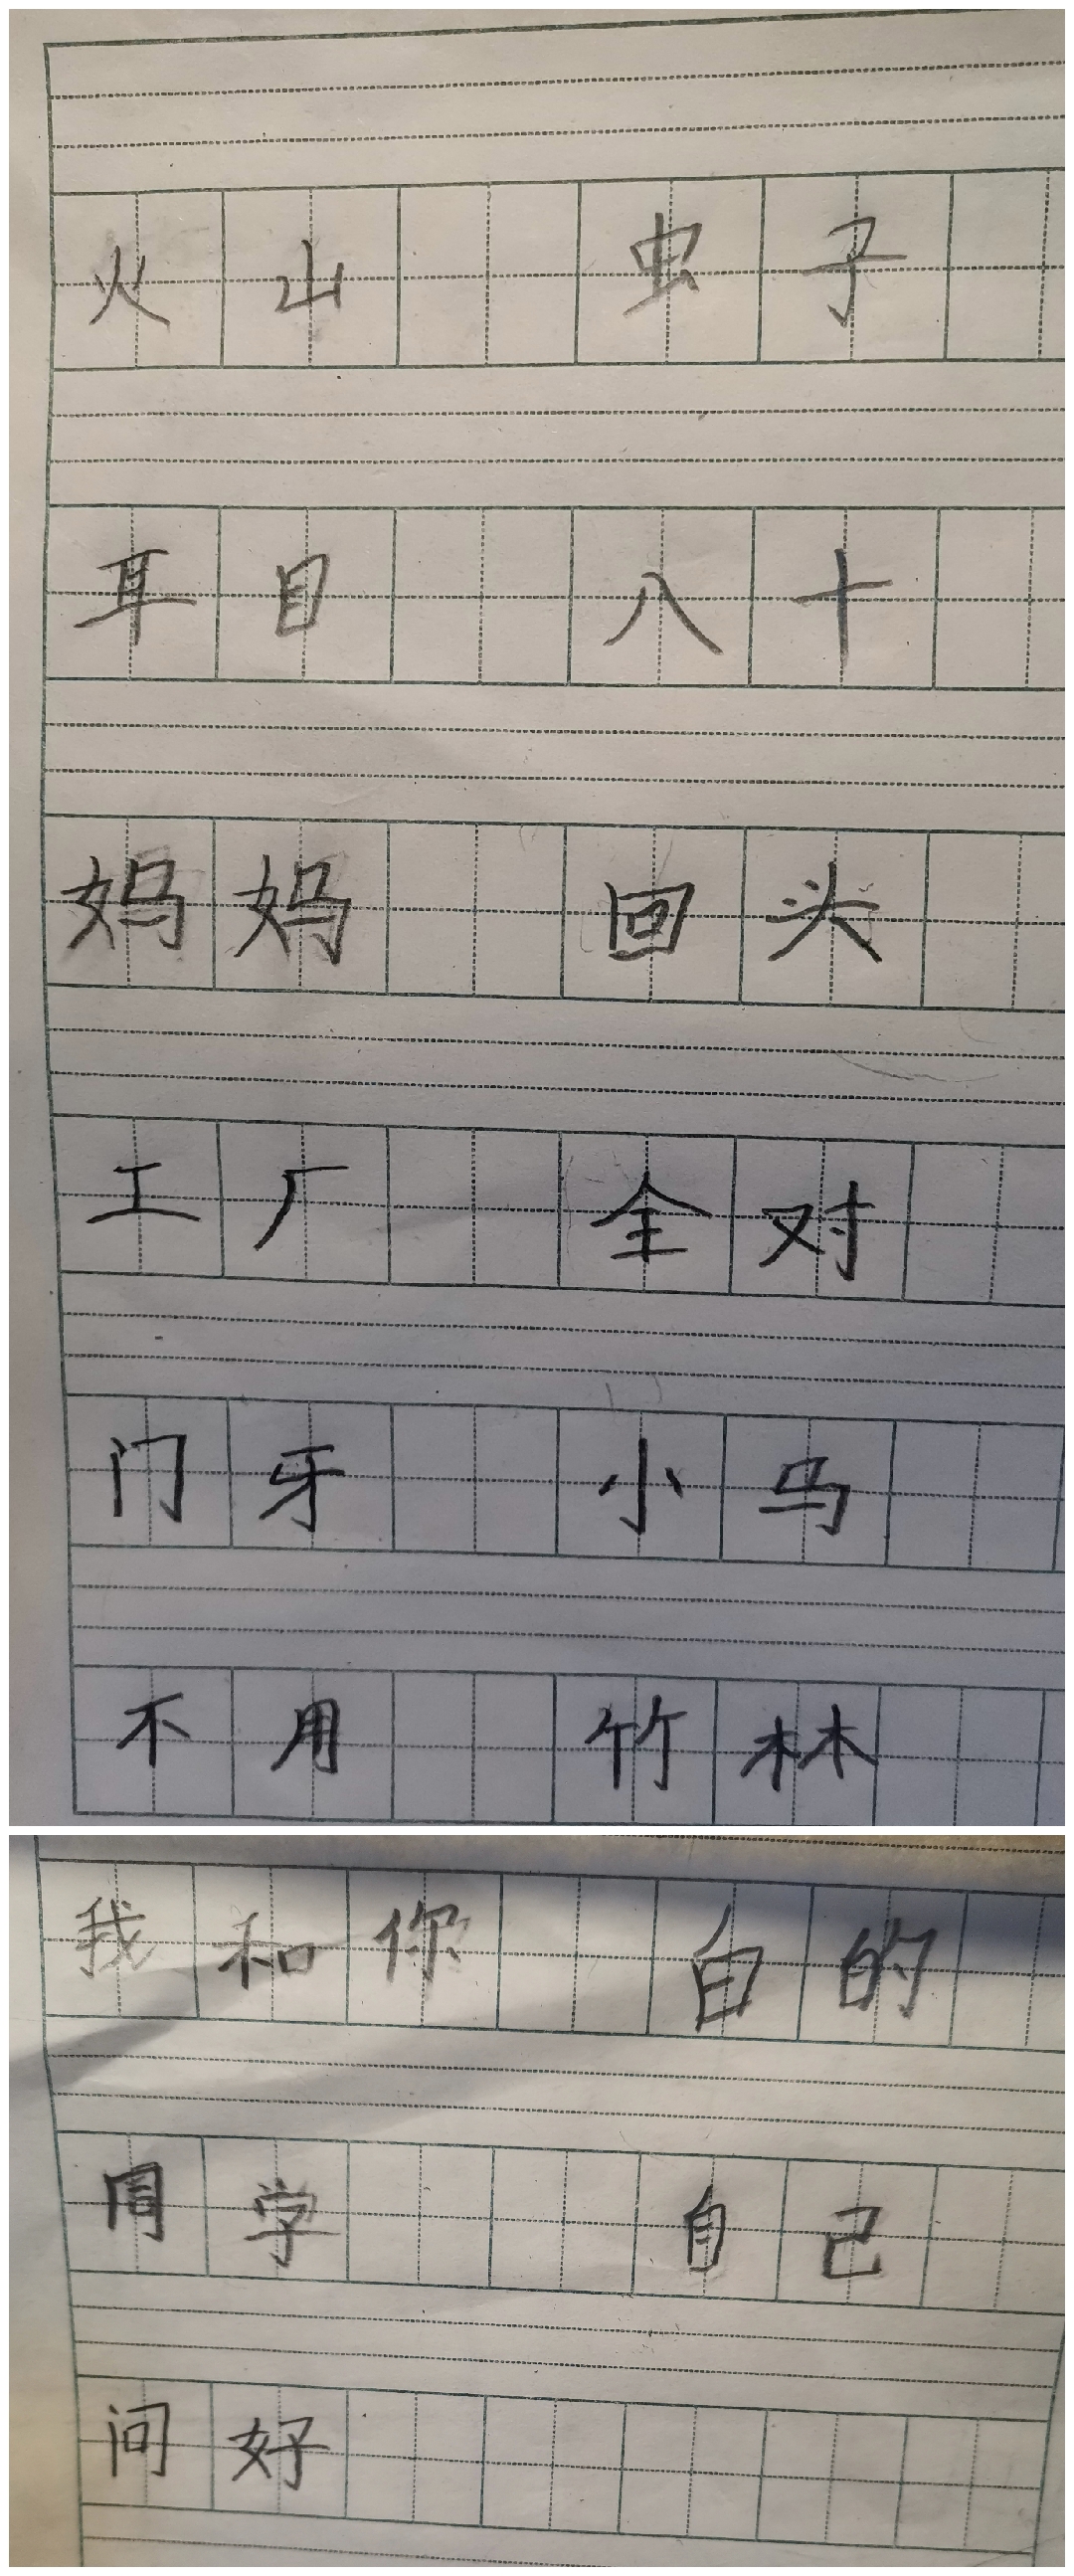 火山 虫子
耳目 八十
妈妈 回头
工厂 全对
门牙 小马
不用 竹林
我和你 白的
字 自己
问好